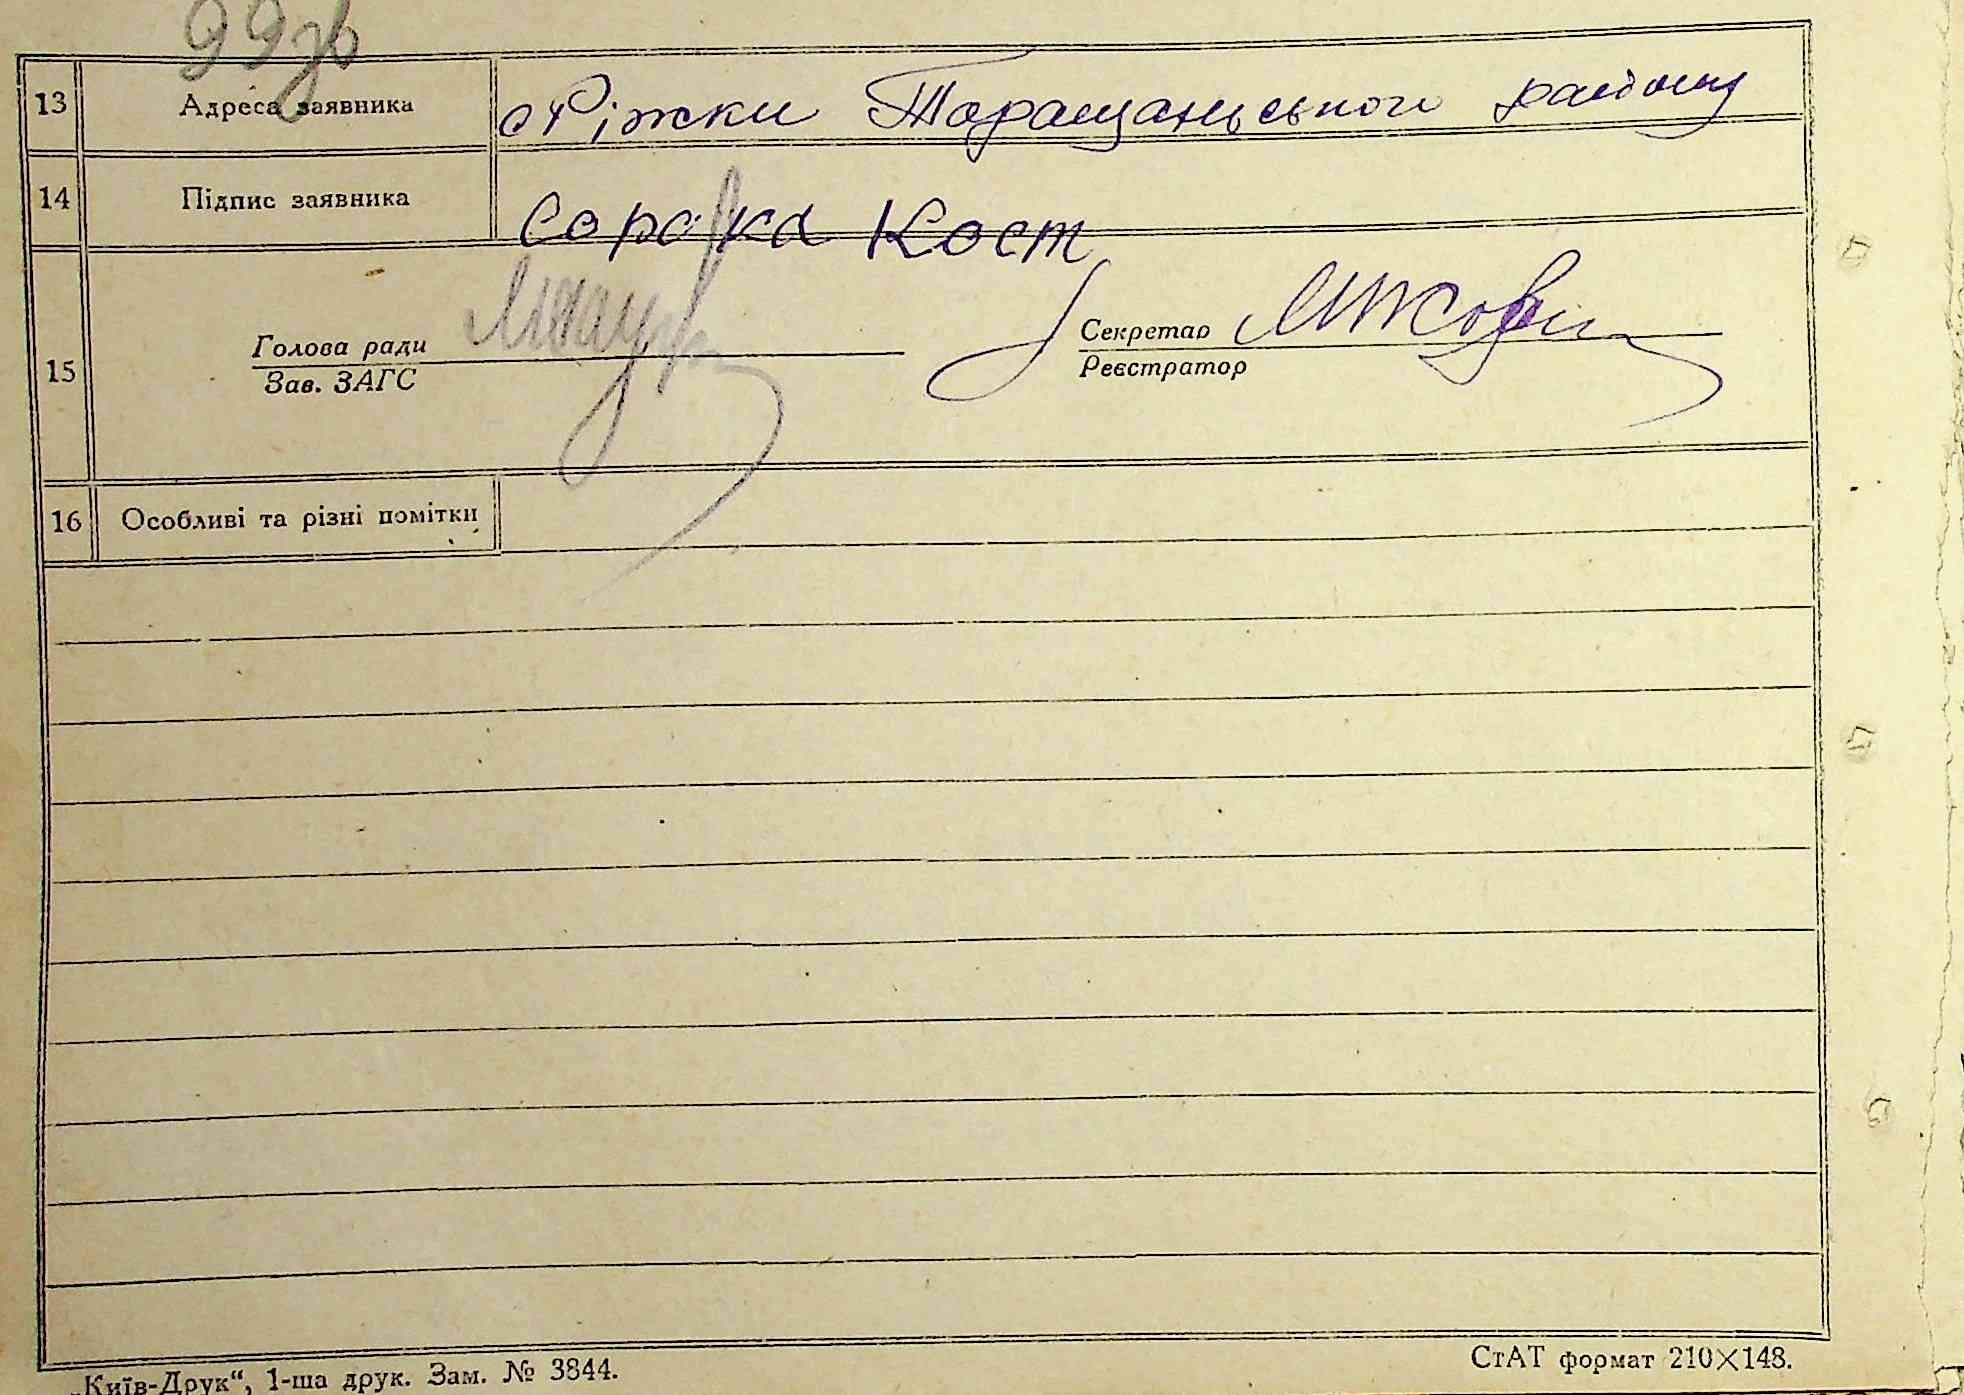 99зв
13 Адреса заявника с Ріжки Таращанського району
14 Підпис заявника Сорока Кост
15 Голова ради Секретар
Зав. ЗАГС Реєстратор
16 Особливі та різні помітки
„Київ-Друк“, 1-ша друк. Зам. № 3844. СтАТ формат 210×148.